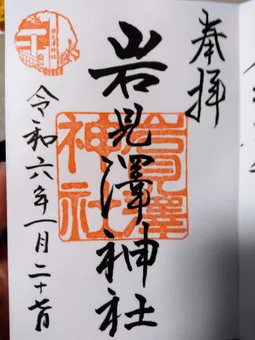 奉拝
岩見澤神社
岩見澤神社
令和六年一月二十七日